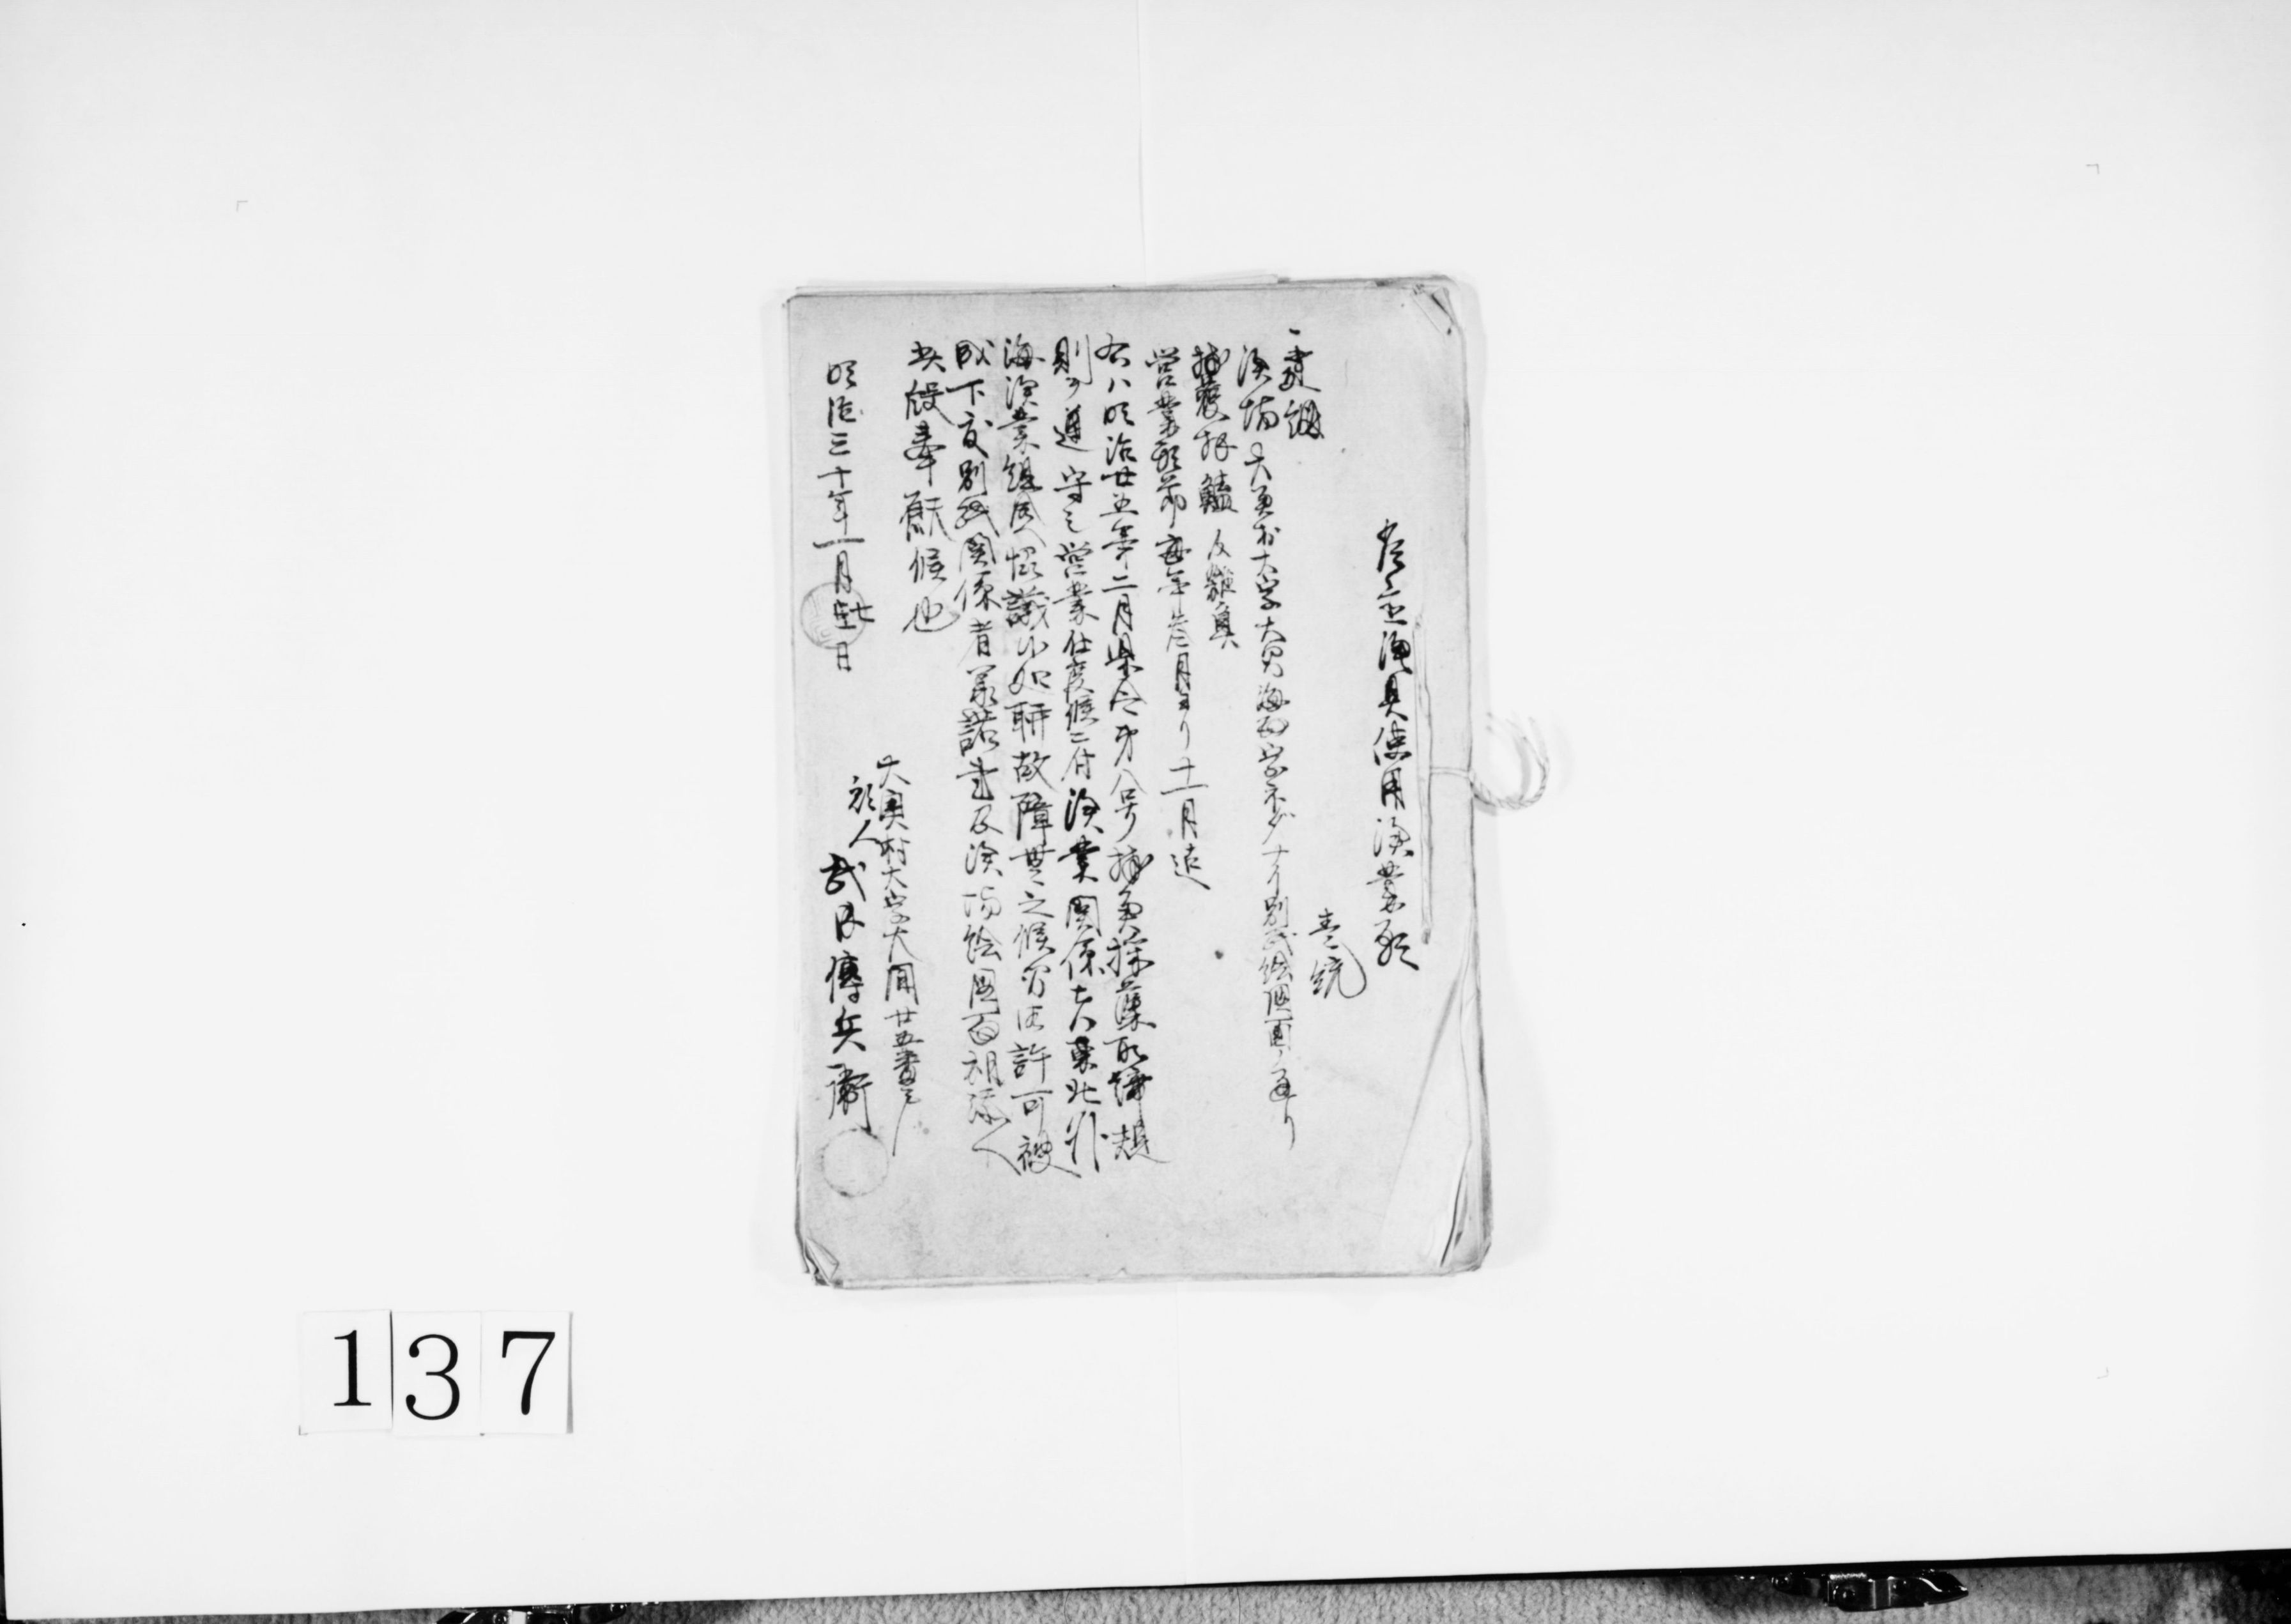 定置漁具使用漁業願
一建網 壱統
漁場 大奥村大字大間海面字ネダナイ別紙絵図面ノ通リ
捕獲採鱶及雑魚
営業期節毎年 月ヨリ十一月迄
右ハ明治廿五年二月県令第八号捕魚採藻取締規
則ヲ遵守シ営業仕度候ニ付漁業関係者東北州
海漁業組合へ協議候処聊故障無之候間御許可被
成下度別紙関係者承諾書及漁場絵図面相添へ
此段奉願候也
明治三十年一月廿七日
大奥村大字大間廿五番戸
願人 武内傳兵衛
137